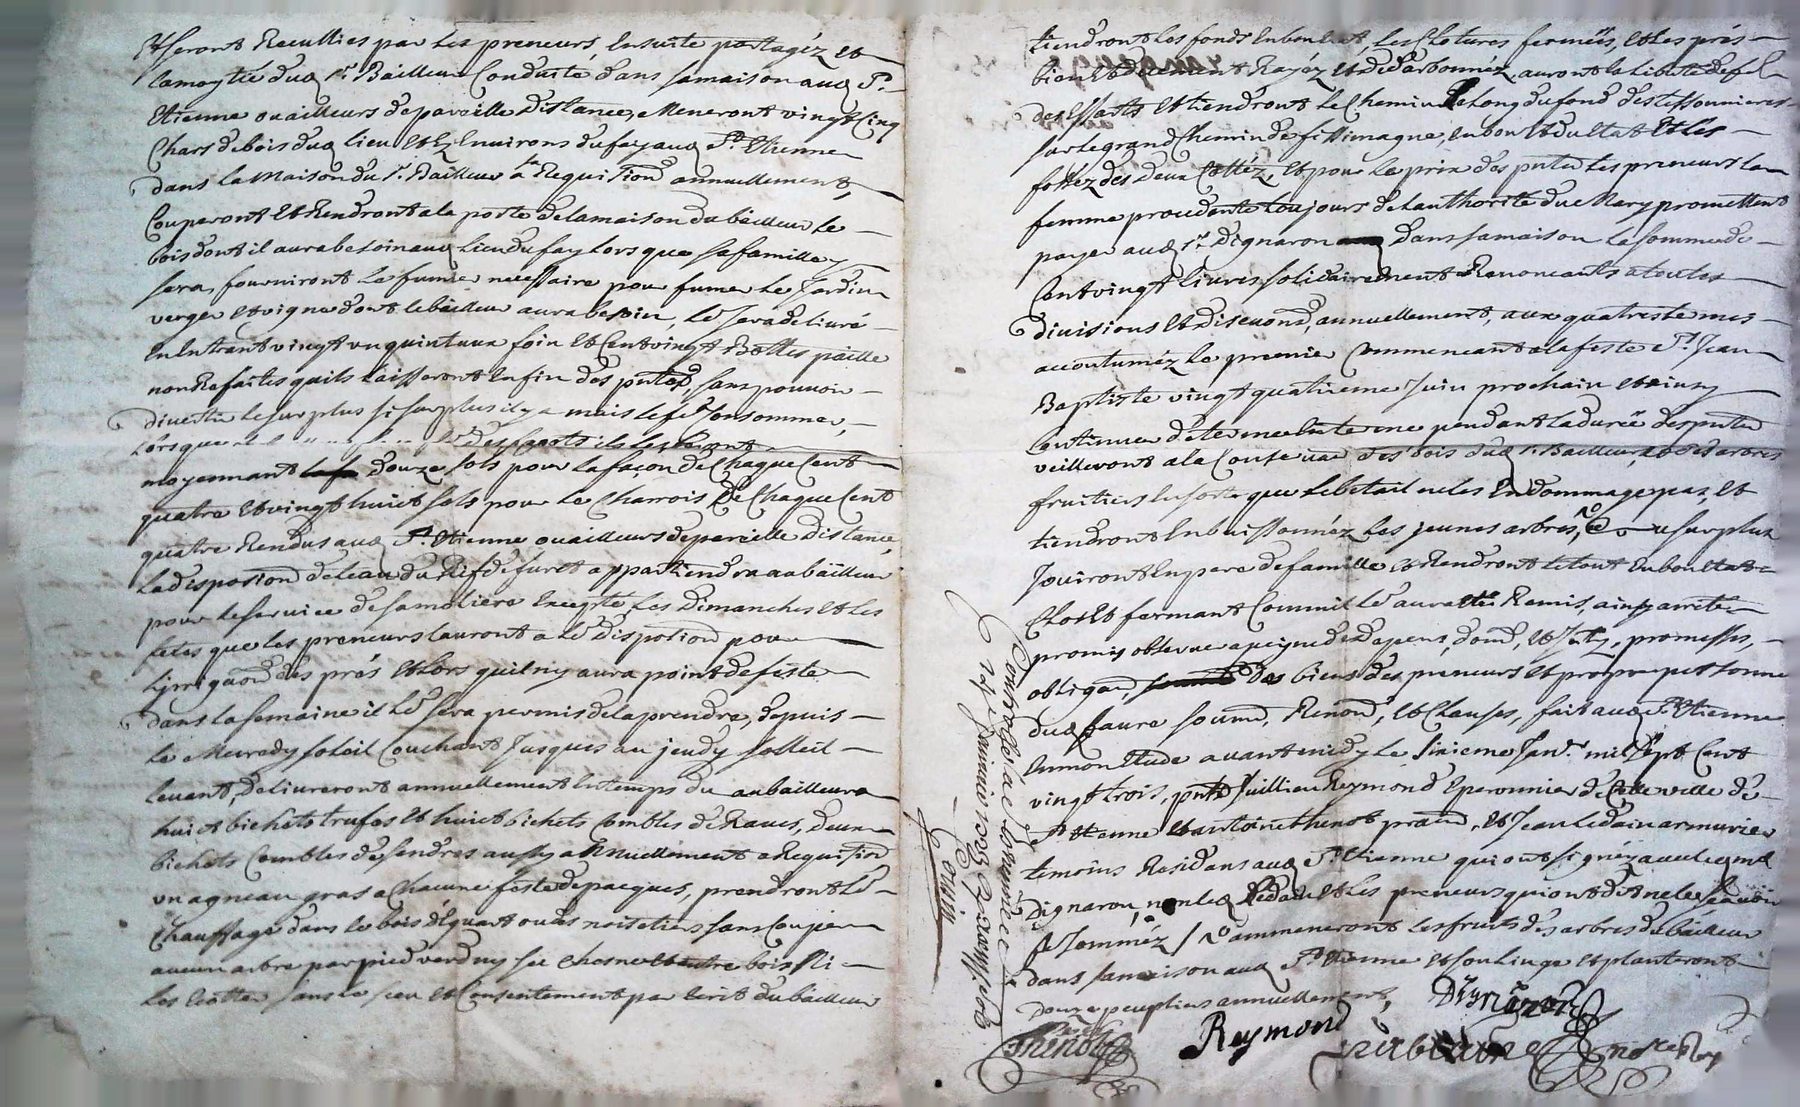 Et seront Recullies par les preneurs, Ensuite partagéz et
lamoytié dud sr. Bailleur Conduitte dans samaison aud St.
Etienne ouailleurs depareille distance, Meneront vingt Cinq
Chars debois dud lieu et Environs dufay aud St. Etienne
dans la Maison du sr. Bailleur a sa Requisition annuellement,
Couperont et Rendront ala porte delamaison du bailleur le
bois dont il aura besoin aud lieu dufay lors que sa famille y
sera, fourniront le fumier necessaire pour fumer le Jardin
verger et vigne dont lebailleur aura besoin, le sera delivré
En Entrant vingt un quintaux foin et Cent vingt Bottes paille
non Refaites quils laisseront Enfin des pntes, sans pouvoir
divertir le surplus si surplus il y a mais le fe. Consommer,
Lorsque des Essarts ils les feront
moyennant douze sols pour la façon de Chaque Cent
quatre et vingt huict sols pour le Charrois de Chaque Cent
quatre Rendus aud St. Etienne ouailleurs depareille distance,
La disposion de leau du Rif de furet appartiendra au bailleur
pour le service de samoliere Excepté les Dimanches et les
fetes que les preneurs lauront a le. disposion pour
Lirrigaon des prés et Lors quil ny aura point de feste
dans la semaine il le. sera permis de la prendre, depuis
le Mecredy soleil Couchant Jusques au jeudy solleil
levant, Delivreront annuellement Entemps du au bailleur
huict bichets trufes et huict bichets Combles de Raves, deux
bichets Combles de sendres aussy annuellement a Requision
un agneau gras a Chacune feste de pacques, prendront le.
Chauffage dans le bois ou es noisetiers sans Couper
aucun arbre par pied verd ny sec Chesne et autre bois Ni
Les Ecotter sans le sceu et Consentement par Ecrit du bailleur
tiendront les fonds En bon Etat, Les Clotures fermées, et les prés
bien et deument Rayéz et auront la liberté de f
des Essarts et tiendront le Chemin Le Long du fond des tessonnieres
sur le grand Chemin de fillimagne, En bon et du Etat et les
fosséz des deux Cottéz, Et pour le prix des pntes les preneurs la
femme procedante toujours de lauthorité du Mary promettent
payer aud sr. Dignaron dans samaison la somme de
Cent vingt livres solidairement Renonceants a toutes
divisions et discuons, annuellement, aux quatre termes
accoutuméz le premier Commenceant a la feste St. Jean
Baptiste vingt quatrieme Juin prochain et ainsy
Continuer de terme En terme pendant la durée des pntes
veilleront a la Conservaon des bois dud sr. Bailleur, et des arbres
fruitiers En sorte que le betail ne les Endommage pas et
tiendront Enbuissonnéz Les jeunes arbres, & au surplus
Jouiront En pere de famille & Rendront le tout En bon Etat
Clos et fermant Comm'il le. aura Eté Remis, ainsy arreté
promis observer a peyne de depens, dom., et Jnts, promesses,
obligaon, des biens des preneurs et propre personne
dud faure soumn. Renon., et Clauses, fait aud St. Etienne
En mon Etude avant midy le sixieme Janr. mil sept Cent
vingt trois, pnts Juillien Reymond Eperonnier de Cette ville de
St. Etienne et antoine thenot pratn., et Jean Ledain armurier
temoins Residans aud St. Etienne qui ont signéz avec led sr.
Dignaron, non led Ledain et les preneurs qui ont dit ne le scavoir
de ce Somméz / & ammeneront les fruits des arbres du bailleur
dans samaison aud St. Etienne et son Linge et planteront
Douze peupliers annuellement,
Dignaron
Thenot
Reymond
nore Roy
Controllé a St. Etienne ce
Janvier 1723